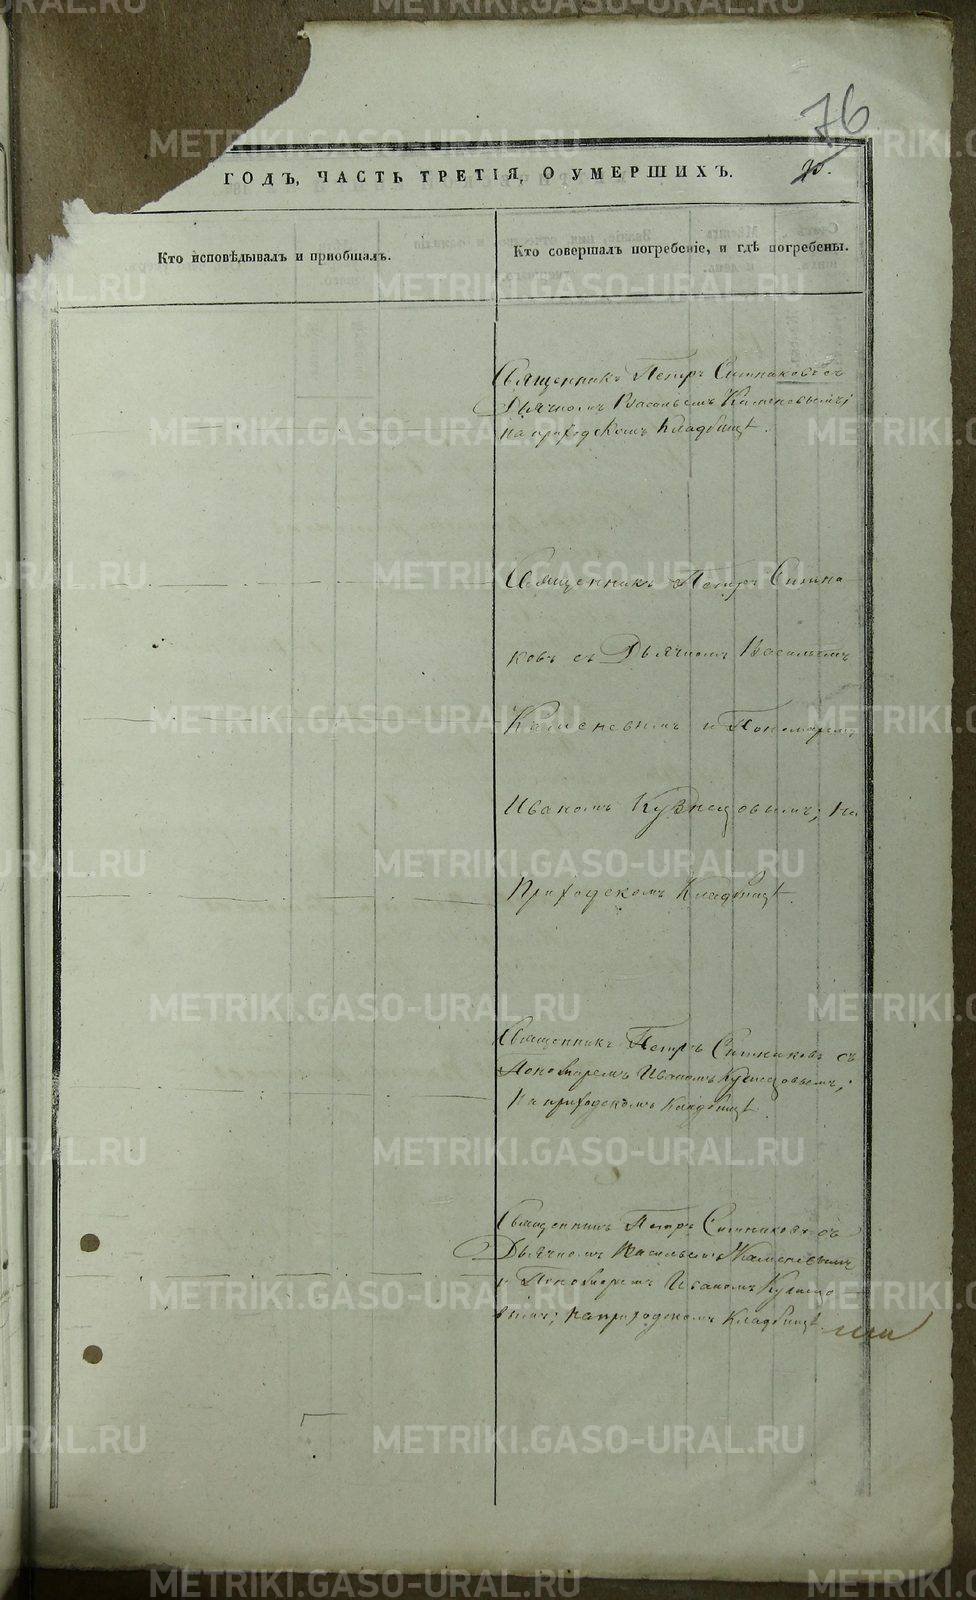 76
ГОДЪ, ЧАСТЬ ТРЕТІЯ, О УМЕРШИХЪ.
Кто исповѣдывалъ и приобщалъ.
Кто совершалъ погребеніе, и гдѣ погребены.
Священникъ Петръ Ситниковъ съ
Дьячкомъ Васильемъ Каменевымъ;
на приходскомъ кладбищѣ.
Священникъ Петръ Ситни
ковъ съ Дьячкомъ Васильемъ
Каменевымъ и Пономаремъ
Иваномъ Кузнецовымъ; на
Приходскомъ кладбищѣ.
Священникъ Петръ Ситниковъ съ
Пономаремъ Иваномъ Кузнецовымъ;
на приходскомъ кладбищѣ.
Священникъ Петръ Ситниковъ съ
Дьячкомъ Васильемъ Каменевымъ
и Пономаремъ Иваномъ Кузнецо
вымъ; на приходскомъ кладбищѣ.
METRIKI.GASO-URAL.RU